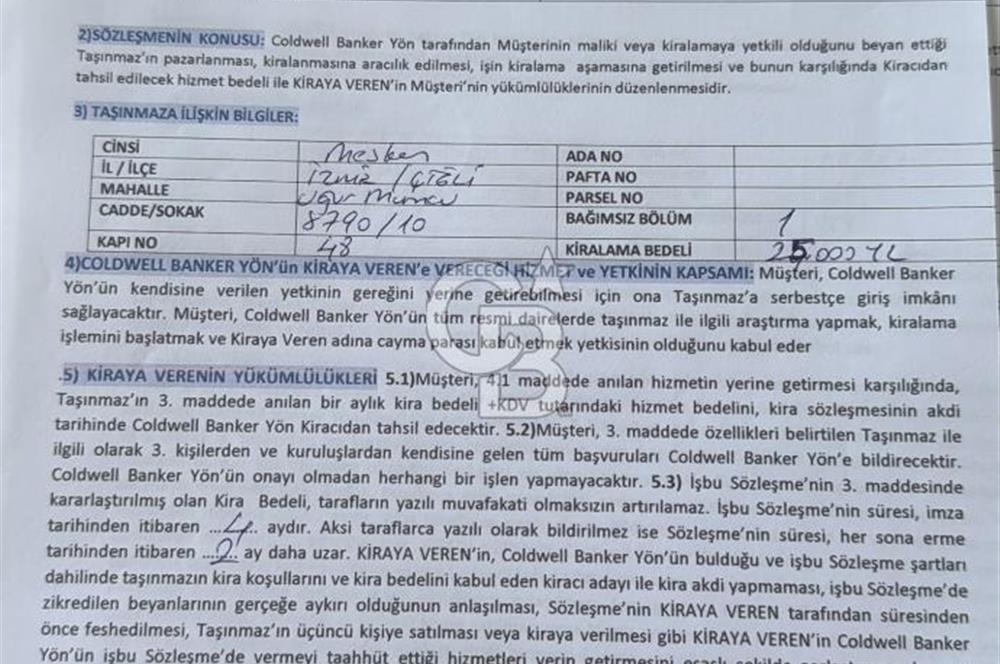 2)SÖZLEŞMENİN KONUSU: Coldwell Banker Yön tarafından Müşterinin maliki veya kiralamaya yetkili olduğunu beyan ettiği
Taşınmaz'ın pazarlanması, kiralanmasına aracılık edilmesi, işin kiralama aşamasına getirilmesi ve bunun karşılığında Kiracıdan
tahsil edilecek hizmet bedeli ile KİRAYA VEREN'in Müşteri'nin yükümlülüklerinin düzenlenmesidir.
3) TAŞINMAZA İLİŞKİN BİLGİLER:
CİNSİ Mesken ADA NO
İL / İLÇE İZMİR / ÇİĞLİ PAFTA NO
MAHALLE Uğur Mumcu PARSEL NO
CADDE/SOKAK 8790/10 BAĞIMSIZ BÖLÜM 1
KAPI NO 48 KİRALAMA BEDELİ 25,000 TL
4)COLDWELL BANKER YÖN'ün KİRAYA VEREN'e VERECEĞİ HİZMET ve YETKİNİN KAPSAMI: Müşteri, Coldwell Banker
Yön'ün kendisine verilen yetkinin gereğini yerine getirebilmesi için ona Taşınmaz'a serbestçe giriş imkânı
sağlayacaktır. Müşteri, Coldwell Banker Yön'ün tüm resmi dairelerde taşınmaz ile ilgili araştırma yapmak, kiralama
işlemini başlatmak ve Kiraya Veren adına cayma parası kabul etmek yetkisinin olduğunu kabul eder
.5) KİRAYA VERENİN YÜKÜMLÜLÜKLERİ 5.1)Müşteri, 4.1 maddede anılan hizmetin yerine getirmesi karşılığında,
Taşınmaz'ın 3. maddede anılan bir aylık kira bedeli +KDV tutarındaki hizmet bedelini, kira sözleşmesinin akdi
tarihinde Coldwell Banker Yön Kiracıdan tahsil edecektir. 5.2)Müşteri, 3. maddede özellikleri belirtilen Taşınmaz ile
ilgili olarak 3. kişilerden ve kuruluşlardan kendisine gelen tüm başvuruları Coldwell Banker Yön'e bildirecektir.
Coldwell Banker Yön'ün onayı olmadan herhangi bir işlen yapmayacaktır. 5.3) İşbu Sözleşme'nin 3. maddesinde
kararlaştırılmış olan Kira Bedeli, tarafların yazılı muvafakati olmaksızın artırılamaz. İşbu Sözleşme'nin süresi, imza
tarihinden itibaren ...4... aydır. Aksi taraflarca yazılı olarak bildirilmez ise Sözleşme'nin süresi, her sona erme
tarihinden itibaren ...2... ay daha uzar. KİRAYA VEREN'in, Coldwell Banker Yön'ün bulduğu ve işbu Sözleşme şartları
dahilinde taşınmazın kira koşullarını ve kira bedelini kabul eden kiracı adayı ile kira akdi yapmaması, işbu Sözleşme'de
zikredilen beyanlarının gerçeğe aykırı olduğunun anlaşılması, Sözleşme'nin KİRAYA VEREN tarafından süresinden
önce feshedilmesi, Taşınmaz'ın üçüncü kişiye satılması veya kiraya verilmesi gibi KİRAYA VEREN'in Coldwell Banker
Yön'ün işbu Sözleşme'de vermeyi taahhüt ettiği hizmetleri yerin getirmesini